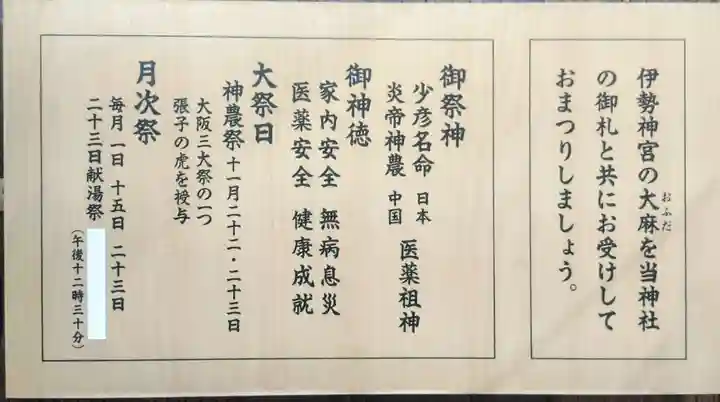 伊勢神宮の大麻を当神社
おふだ
の御札と共にお受けして
おまつりしましょう。
御祭神
少彦名命 日本
炎帝神農 中国
医薬祖神
御神徳
家内安全 無病息災
医薬安全 健康成就
大祭日
神農祭 十一月二十二・二十三日
大阪三大祭の一つ
張子の虎を授与
月次祭
毎月 一日 十五日 二十三日
二十三日献湯祭
(午後十二時三十分)